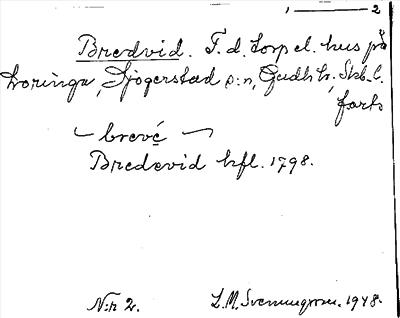 1 ——— 2
Bredvid. F. d. torp el. hus på
Loringa, Sjögerstad s:n, Gudh. h., Skb. l.
forts
brevé
Bredevid hfl. 1798.
N:r 2. L. M. Svenungsson. 1948.